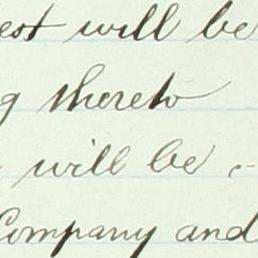 est will be
g thereto
will be
Company and